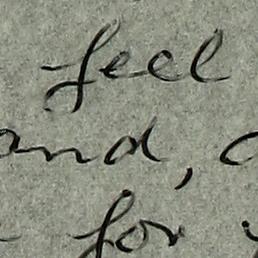 feel
and,
for